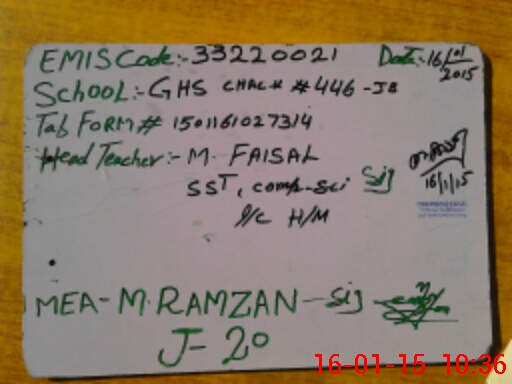 EMIS Code:- 33220021 Date:- 16/01/2015
School:- GHS CHAC # #446-JB
Tab FORM # 1501161027314
Head Teacher:- M. FAISAL
SST, comp-sci Sig
16/1/15
I/C H/M
MEA- M. RAMZAN - Sig
J- 20
16-01-15 10:36